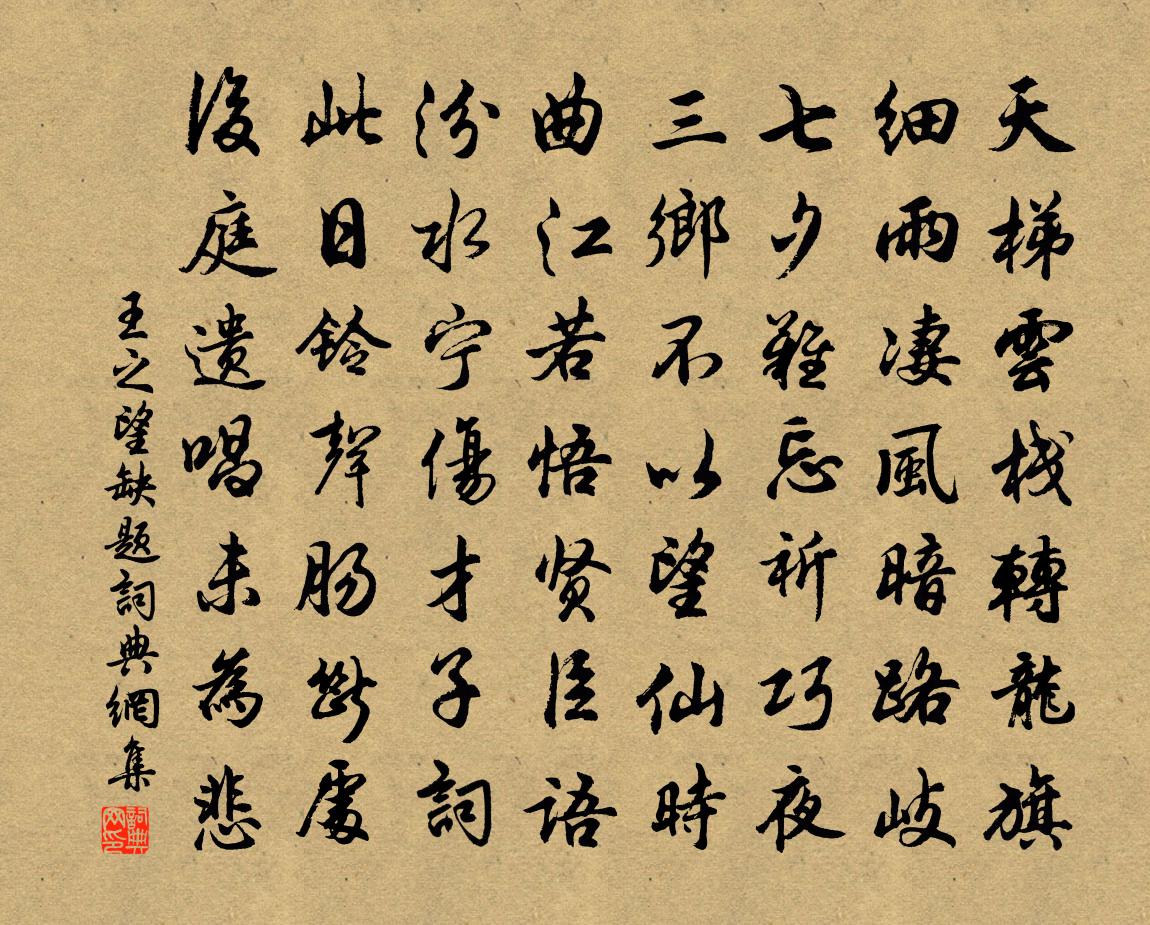 天梯雲棧轉龍旗
細雨凄風暗路岐
七夕難忘祈巧夜
三鄉不以望仙時
曲江若悟贤臣語
汾水宁傷才子詞
此日鈴聲肠斷處
後庭遗唱未為悲
王之望缺题詞典網集
詞典網印